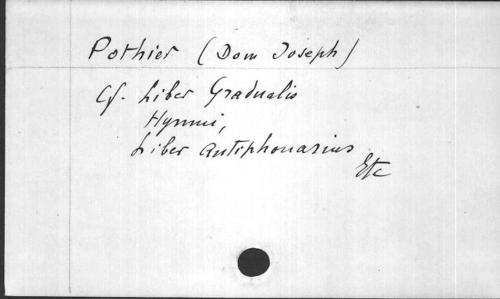 Pothier (Dom Joseph)
Cf. Liber Gradualis
Hymni,
Liber Antiphonarius
Etc